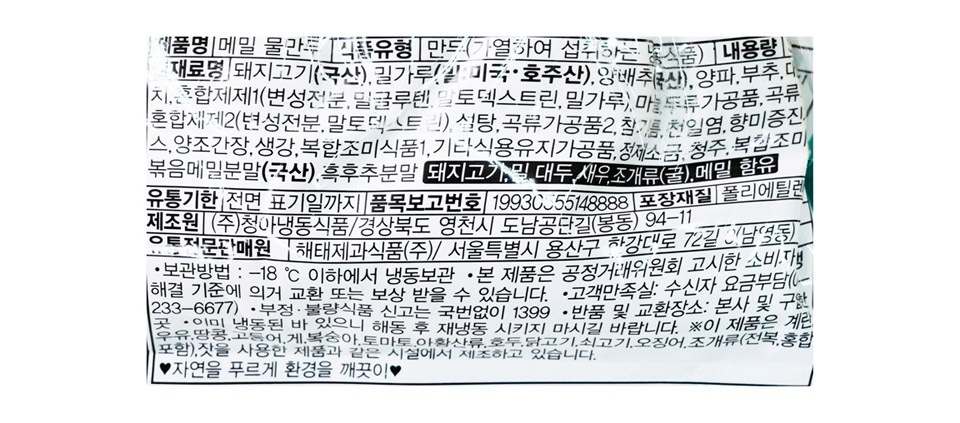 제품명 메밀 물만두 식품유형 만두(가열하여 섭취하는 냉동식품) 내용량
원재료명 돼지고기(국산),밀가루(밀:미국·호주산),양배추(국산),양파,부추,대
치,혼합제제1(변성전분,밀글루텐,말토덱스트린,밀가루),마늘,두류가공품,곡류
혼합제제2(변성전분,말토덱스트린),설탕,곡류가공품2,참기름,천일염,향미증진
스,양조간장,생강,복합조미식품1,기타식용유지가공품,정제소금,청주,복합조미
볶음메밀분말(국산),흑후추분말 돼지고기,밀,대두,새우,조개류(굴),메밀 함유
유통기한 전면 표기일까지 품목보고번호 포장재질 폴리에틸렌
제조원 (주)청아냉동식품/경상북도 영천시 도남공단길(봉동) 94-11
유통전문판매원 해태제과식품(주)/ 서울특별시 용산구 한강대로 72길 3(남영동)
•보관방법 : -18 ℃ 이하에서 냉동보관 •본 제품은 공정거래위원회 고시한 소비자분
해결 기준에 의거 교환 또는 보상 받을 수 있습니다. •고객만족실: 수신자 요금부담(0-
233-6677) •부정·불량식품 신고는 국번없이 1399 •반품 및 교환장소: 본사 및 구입한
곳 •이미 냉동된 바 있으니 해동 후 재냉동 시키지 마시길 바랍니다. ※이 제품은 계란
우유,땅콩,고등어,게,복숭아,토마토,아황산류,호두,닭고기,쇠고기,오징어,조개류(전복,홍합
포함),잣을 사용한 제품과 같은 시설에서 제조하고 있습니다.
♥자연을 푸르게 환경을 깨끗이♥